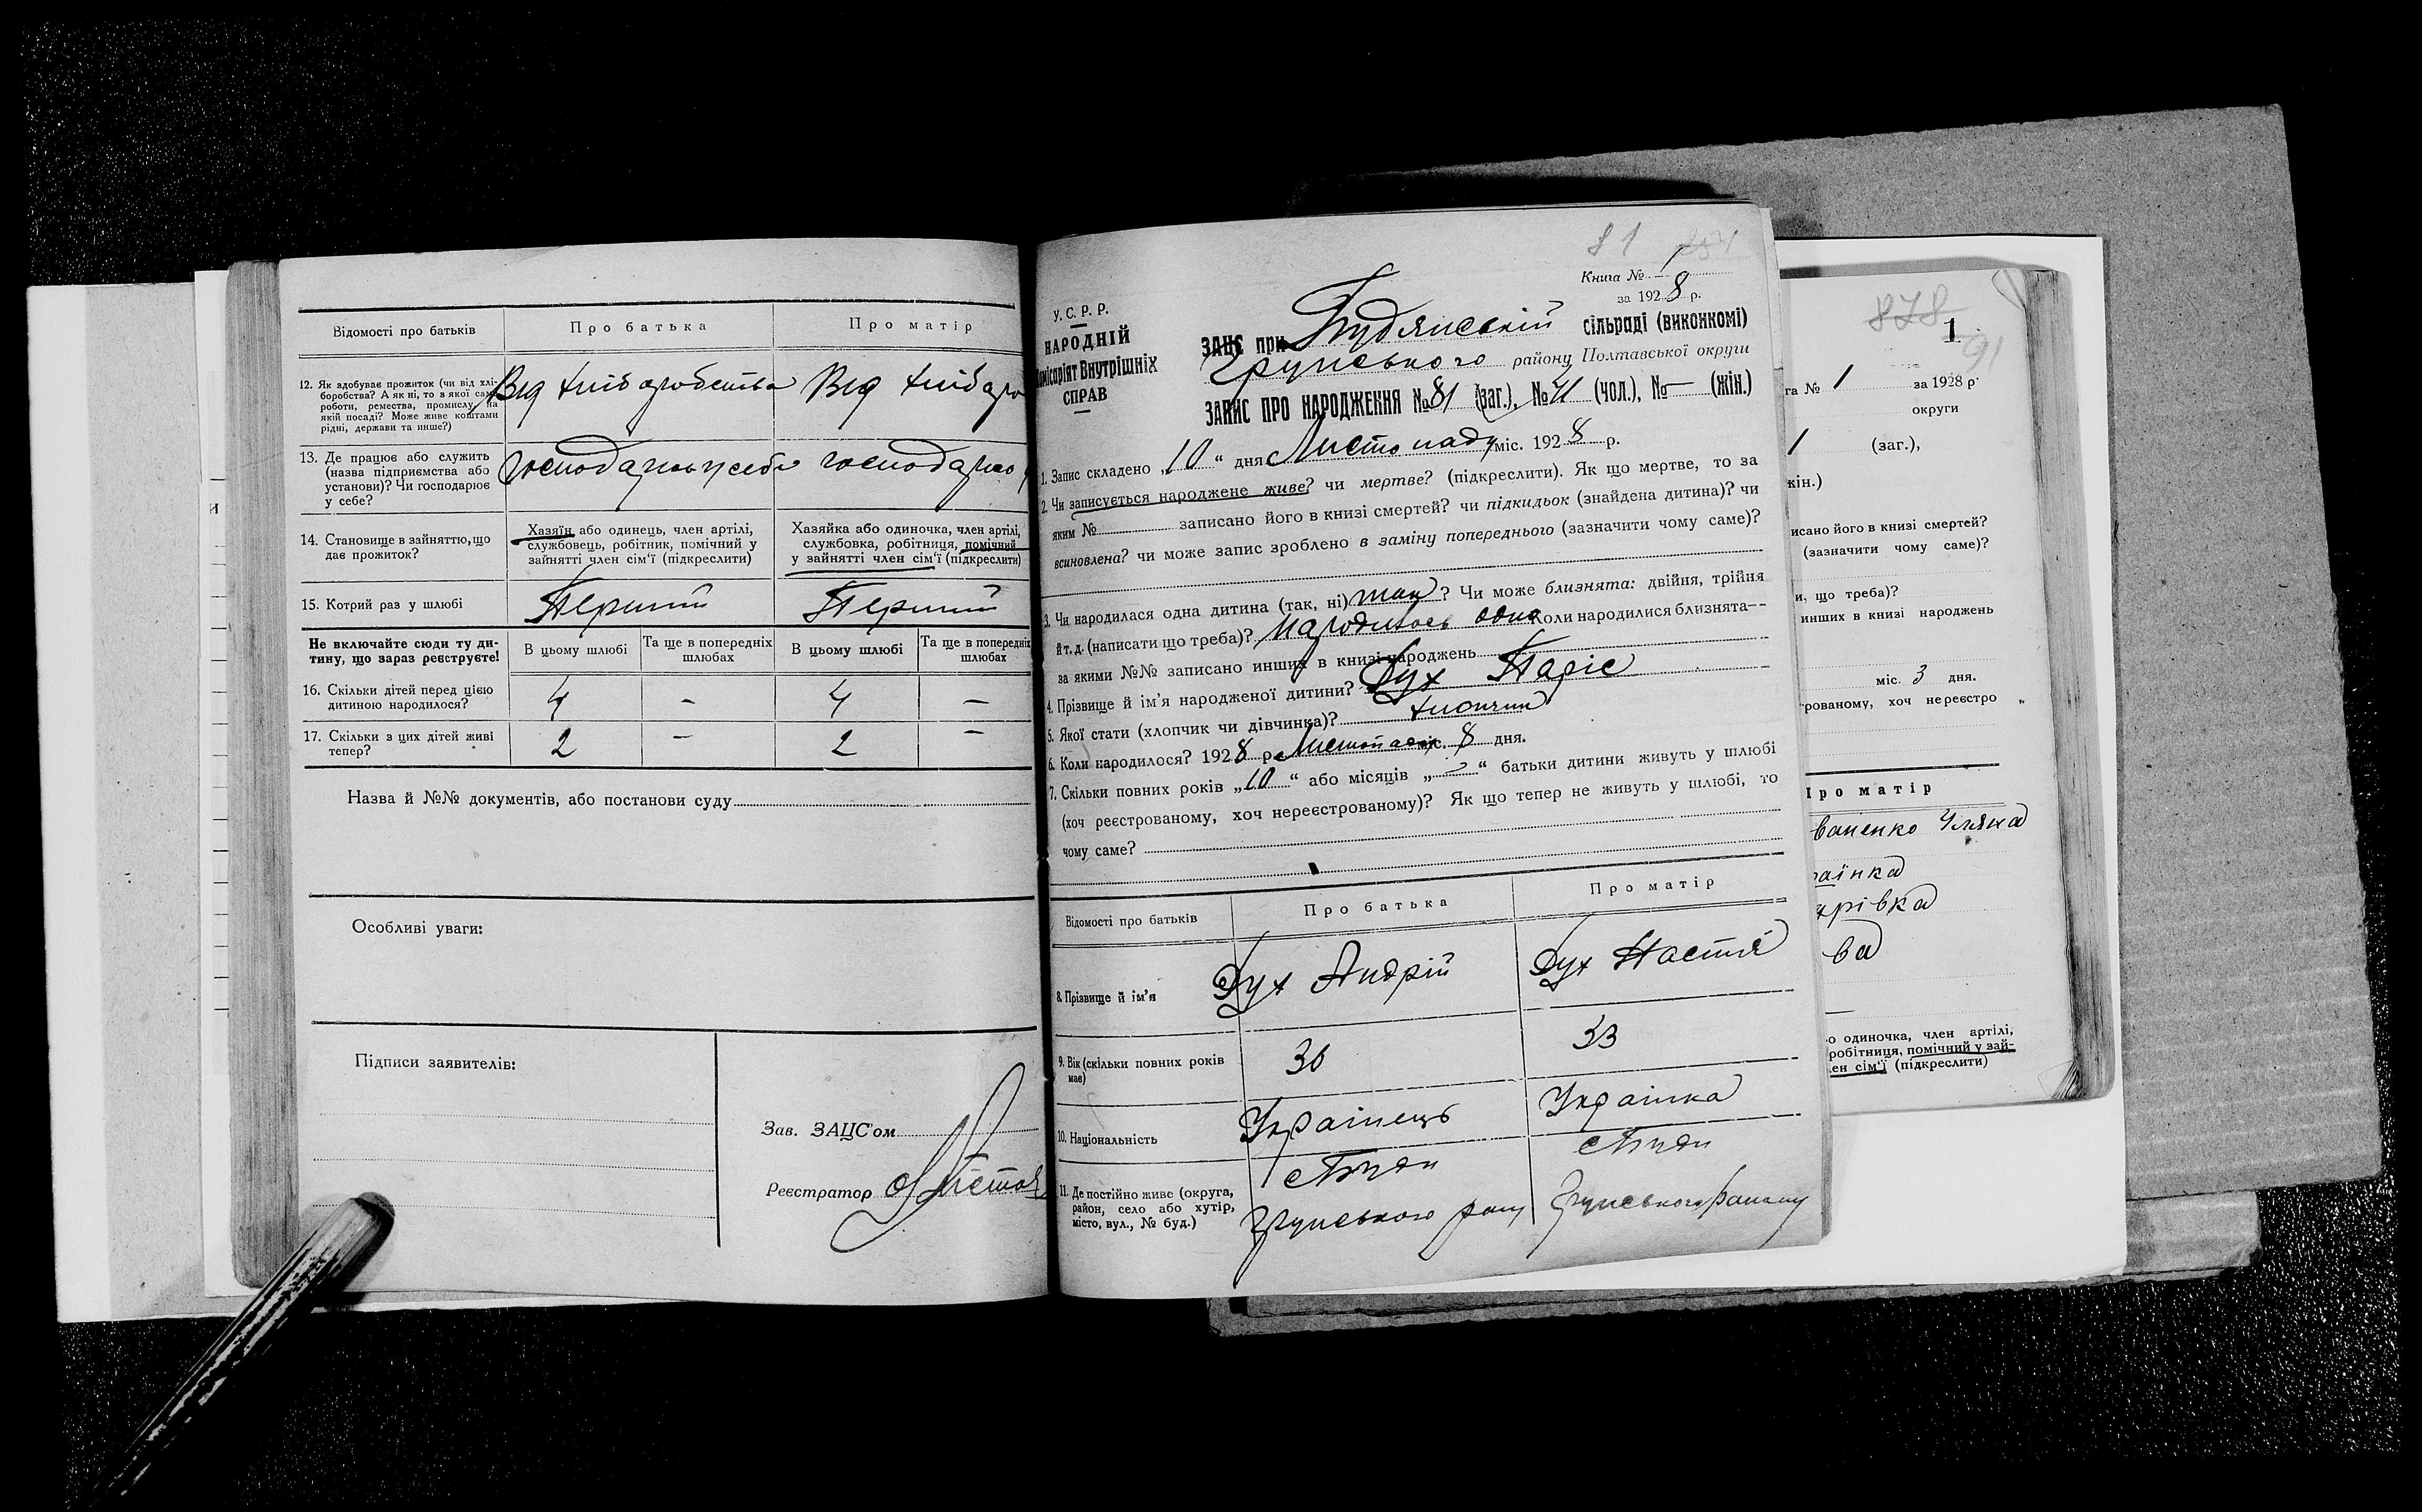 Відомості про батьків
Про батька
Про матір
12. Як здобуває прожиток (чи від хлі-
боробства? А як ні, то в якої сам
роботи, ремества, промислу, на
якій посаді? Може живе коштами
рідні, держави та инше?)
Від хліборобства
Від хлібаро
13. Де працює або служить
(назва підприємства або
установи)? Чи господарює
у себе?
14. Становище в зайняттю, що
дає прожиток?
Хазяїн або одинець, член артілі,
службовець, робітник, помічний у
зайнятті член сім'ї (підкреслити)
Хазяйка або одиночка, член артілі,
службовка, робітниця, помічний
у зайнятті член сім'ї (підкреслити)
15. Котрий раз у шлюбі
Перший
Перший
Не включайте сюди ту ди-
тину, що зараз реєструєте!
В цьому шлюбі
Та ще в попередніх
шлюбах
В цьому шлюбі
Та ще в попередніх
шлюбах
16. Скільки дітей перед цією
дитиною народилося?
4 - 4 -
17. Скільки з цих дітей живі
тепер?
2 - 2 -
Назва й №№ документів, або постанови суду
Особливі уваги:
Підписи заявителів:
Зав. ЗАЦС'ом
Реєстратор
81
Книга № 1
за 1928 р.
У. С. Р. Р.
НАРОДНІЙ
Комісаріят Внутрішніх
СПРАВ
ЗАЦС при сільраді (виконкомі)
Грунського району Полтавської округи
ЗАПИС ПРО НАРОДЖЕННЯ № 81 (заг.), № 41 (чол.), № — (жін.)
1. Запис складено „10" дня Листопаду міс. 1928 р.
2. Чи записується народжене живе? чи мертве? (підкреслити). Як що мертве, то за
яким № записано його в книзі смертей? чи підкидьок (знайдена дитина)? чи
всиновлена? чи може запис зроблено в заміну попереднього (зазначити чому саме)?
3. Чи народилася одна дитина (так, ні) так? Чи може близнята: двійня, трійня
й т. д. (написати що треба)? Народилось одно Коли народилися близнята—
за якими №№ записано инших в книзі народжень
4. Прізвище й ім'я народженої дитини? Дух Паріс
5. Якої стати (хлопчик чи дівчинка)? хлопчик
6. Коли народилося? 1928 р. Листопаду міс. 8 дня.
7. Скільки повних років „10" або місяців „-" батьки дитини живуть у шлюбі
(хоч реєстрованому, хоч нереєстрованому)? Як що тепер не живуть у шлюбі, то
чому саме?
Відомості про батьків
Про батька
Про матір
8. Прізвище й ім'я
Дух Андрій
Дух Настя
9. Вік (скільки повних років
має)
30
33
10. Національність
Українець
Українка
11. Де постійно живе (округа,
район, село або хутір,
місто, вул., № буд.)
Грунського рану
Грунського району
878
1
91
га № 1 за 1928 р.
округи
1 (заг.),
кін.)
исано його в книзі смертей?
(зазначити чому саме)?
и, що треба)?
инших в книзі народжень
міс. 3 дня.
рованому, хоч нереєстро
Про матір
ваненко Уляна
раїнка
рівка
ва
о одиночка, член артілі,
робітниця, помічний у зай-
лен сім'ї (підкреслити)